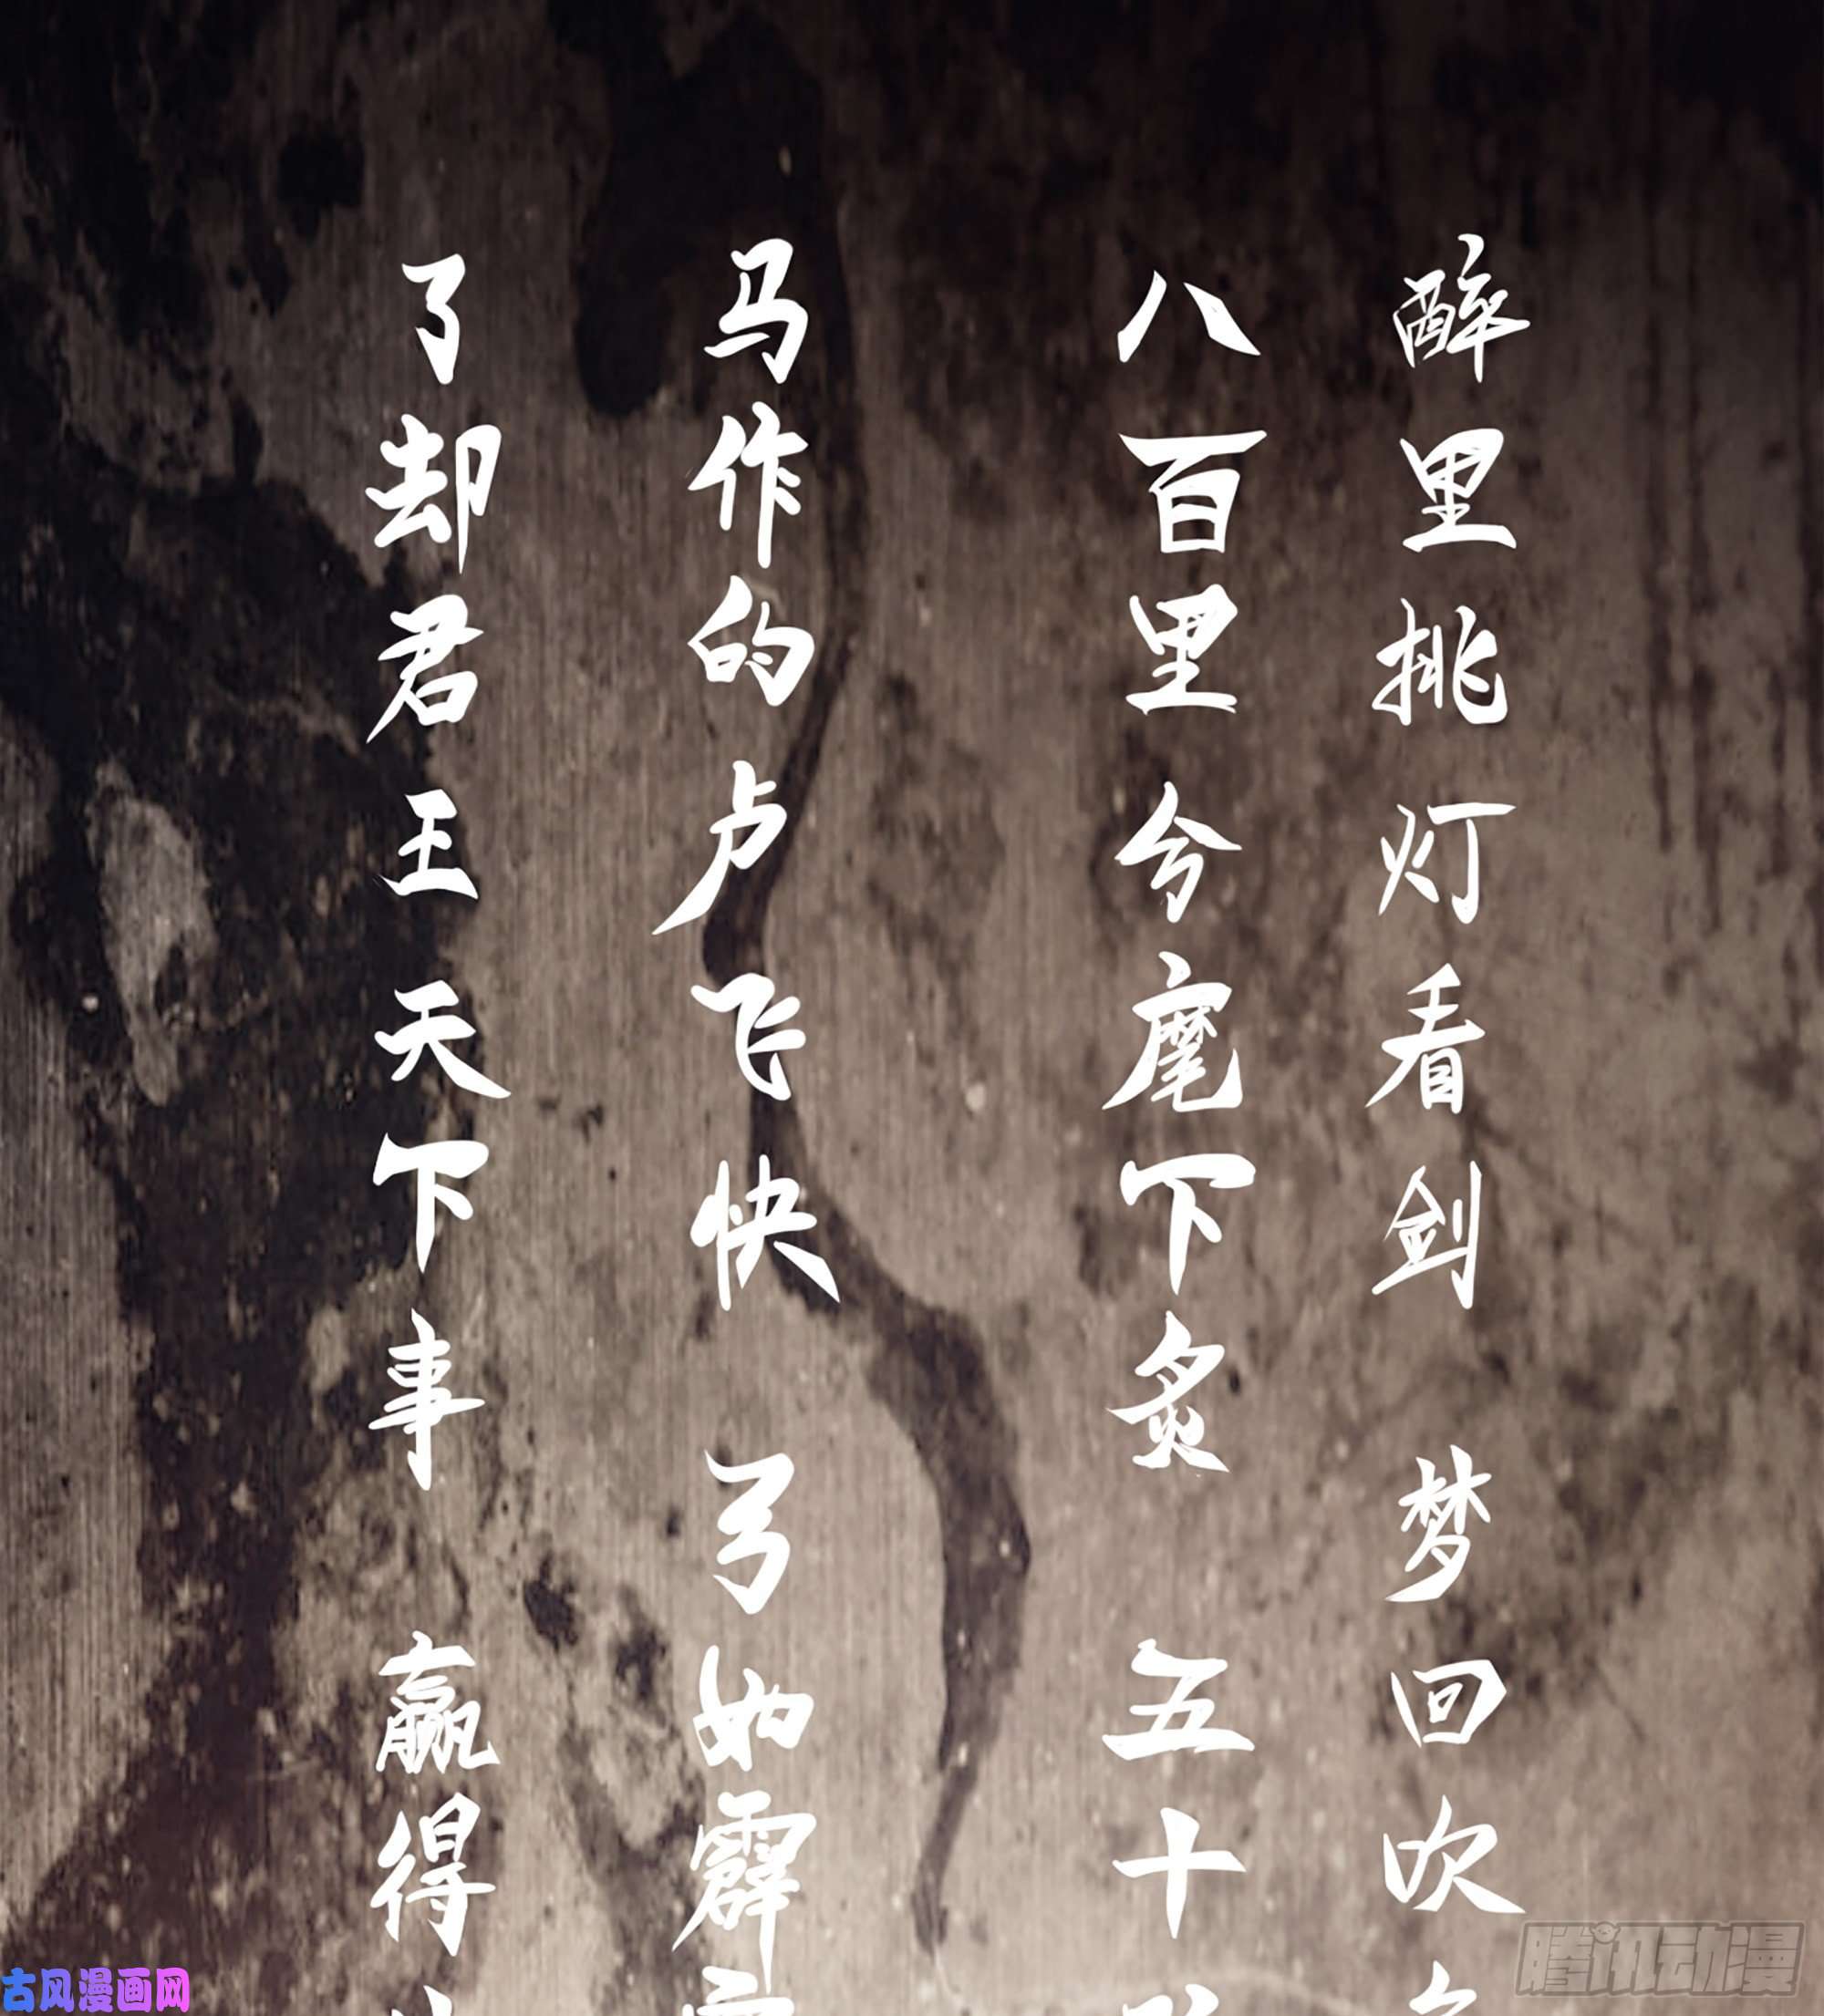 醉里挑灯看剑 梦回吹
八百里兮麾下炙 五十
马作的卢飞快 弓如霹
了却君王天下事 赢得
古风漫画网
腾讯动漫